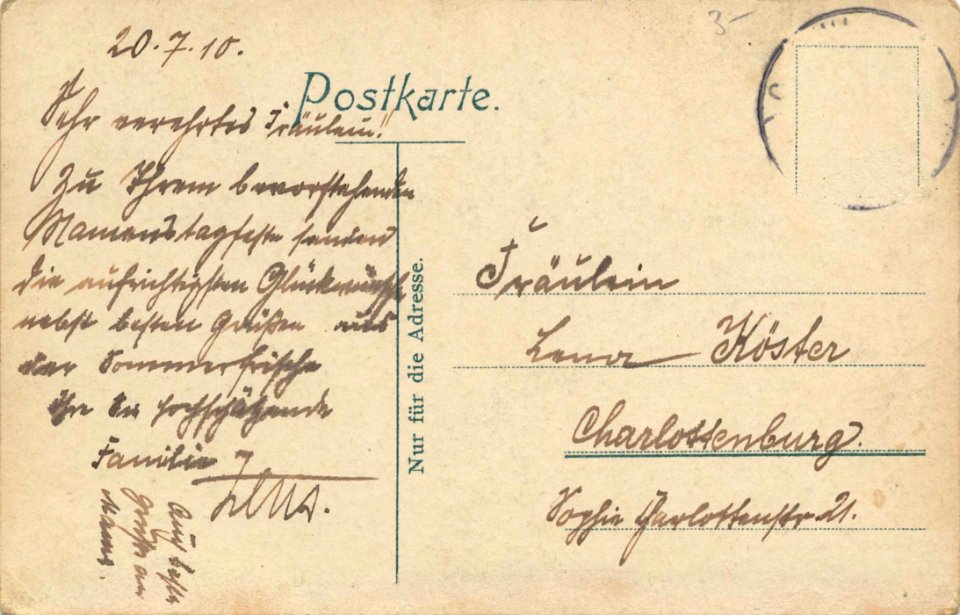 20.7.10.
Postkarte.
Sehr verehrtes Fräulein!
Zu Ihrem bevorstehenden
Namenstagfeste senden
die aufrichtigsten Glückwünsche
nebst besten Grüßen aus
der Sommerfrische
Ihre Sie hochschätzende
Familie
Auch beste
Grüße an
Mama.
Nur für die Adresse.
3-
Fräulein
Lena Köster
Charlottenburg.
Sophie Charlottenstr. 21.